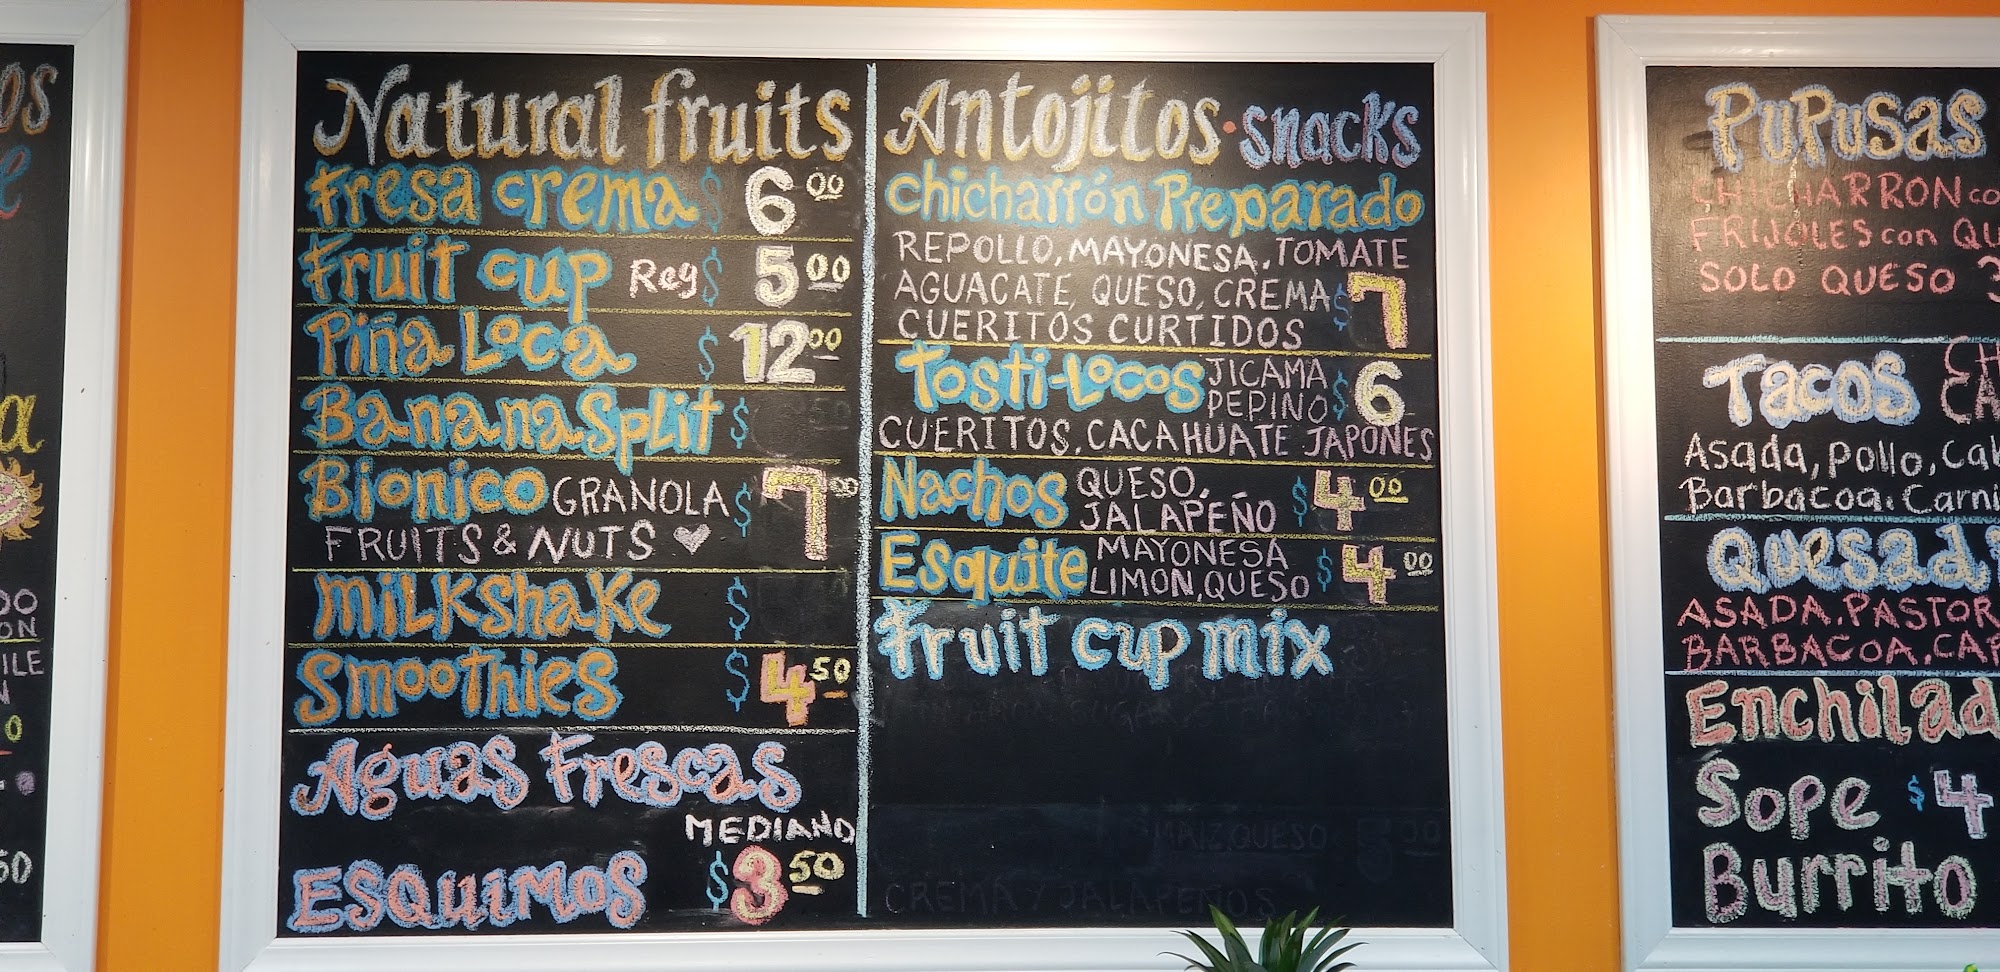 Natural fruits
Fresa crema $ 6 00
Fruit cup Reg $ 5 00
Piña Loca $ 12 00
Banana Split $
Bionico GRANOLA $ 7 00
FRUITS & NUTS
Milkshake $
Smoothies $ 4 50
Aguas Frescas
MEDIANO
ESQUIMOS $ 3 50
Antojitos · snacks
chicharrón Preparado
REPOLLO, MAYONESA, TOMATE
AGUACATE, QUESO, CREMA $ 7
CUERITOS CURTIDOS
Tosti-Locos JICAMA $ 6
PEPINO
CUERITOS, CACAHUATE JAPONES
Nachos QUESO, $ 4 00
JALAPEÑO
Esquite MAYONESA $ 4 00
LIMON, QUESO
Fruit cup mix
MAIZ, QUESO
CREMA Y JALAPEÑOS
PUPUSAS
CHICHARRON
FRIJOLES con
SOLO QUESO
Tacos
Asada, Pollo,
Barbacoa.
ASADA, PASTOR
BARBACOA.
Sope $ 4
Burrito